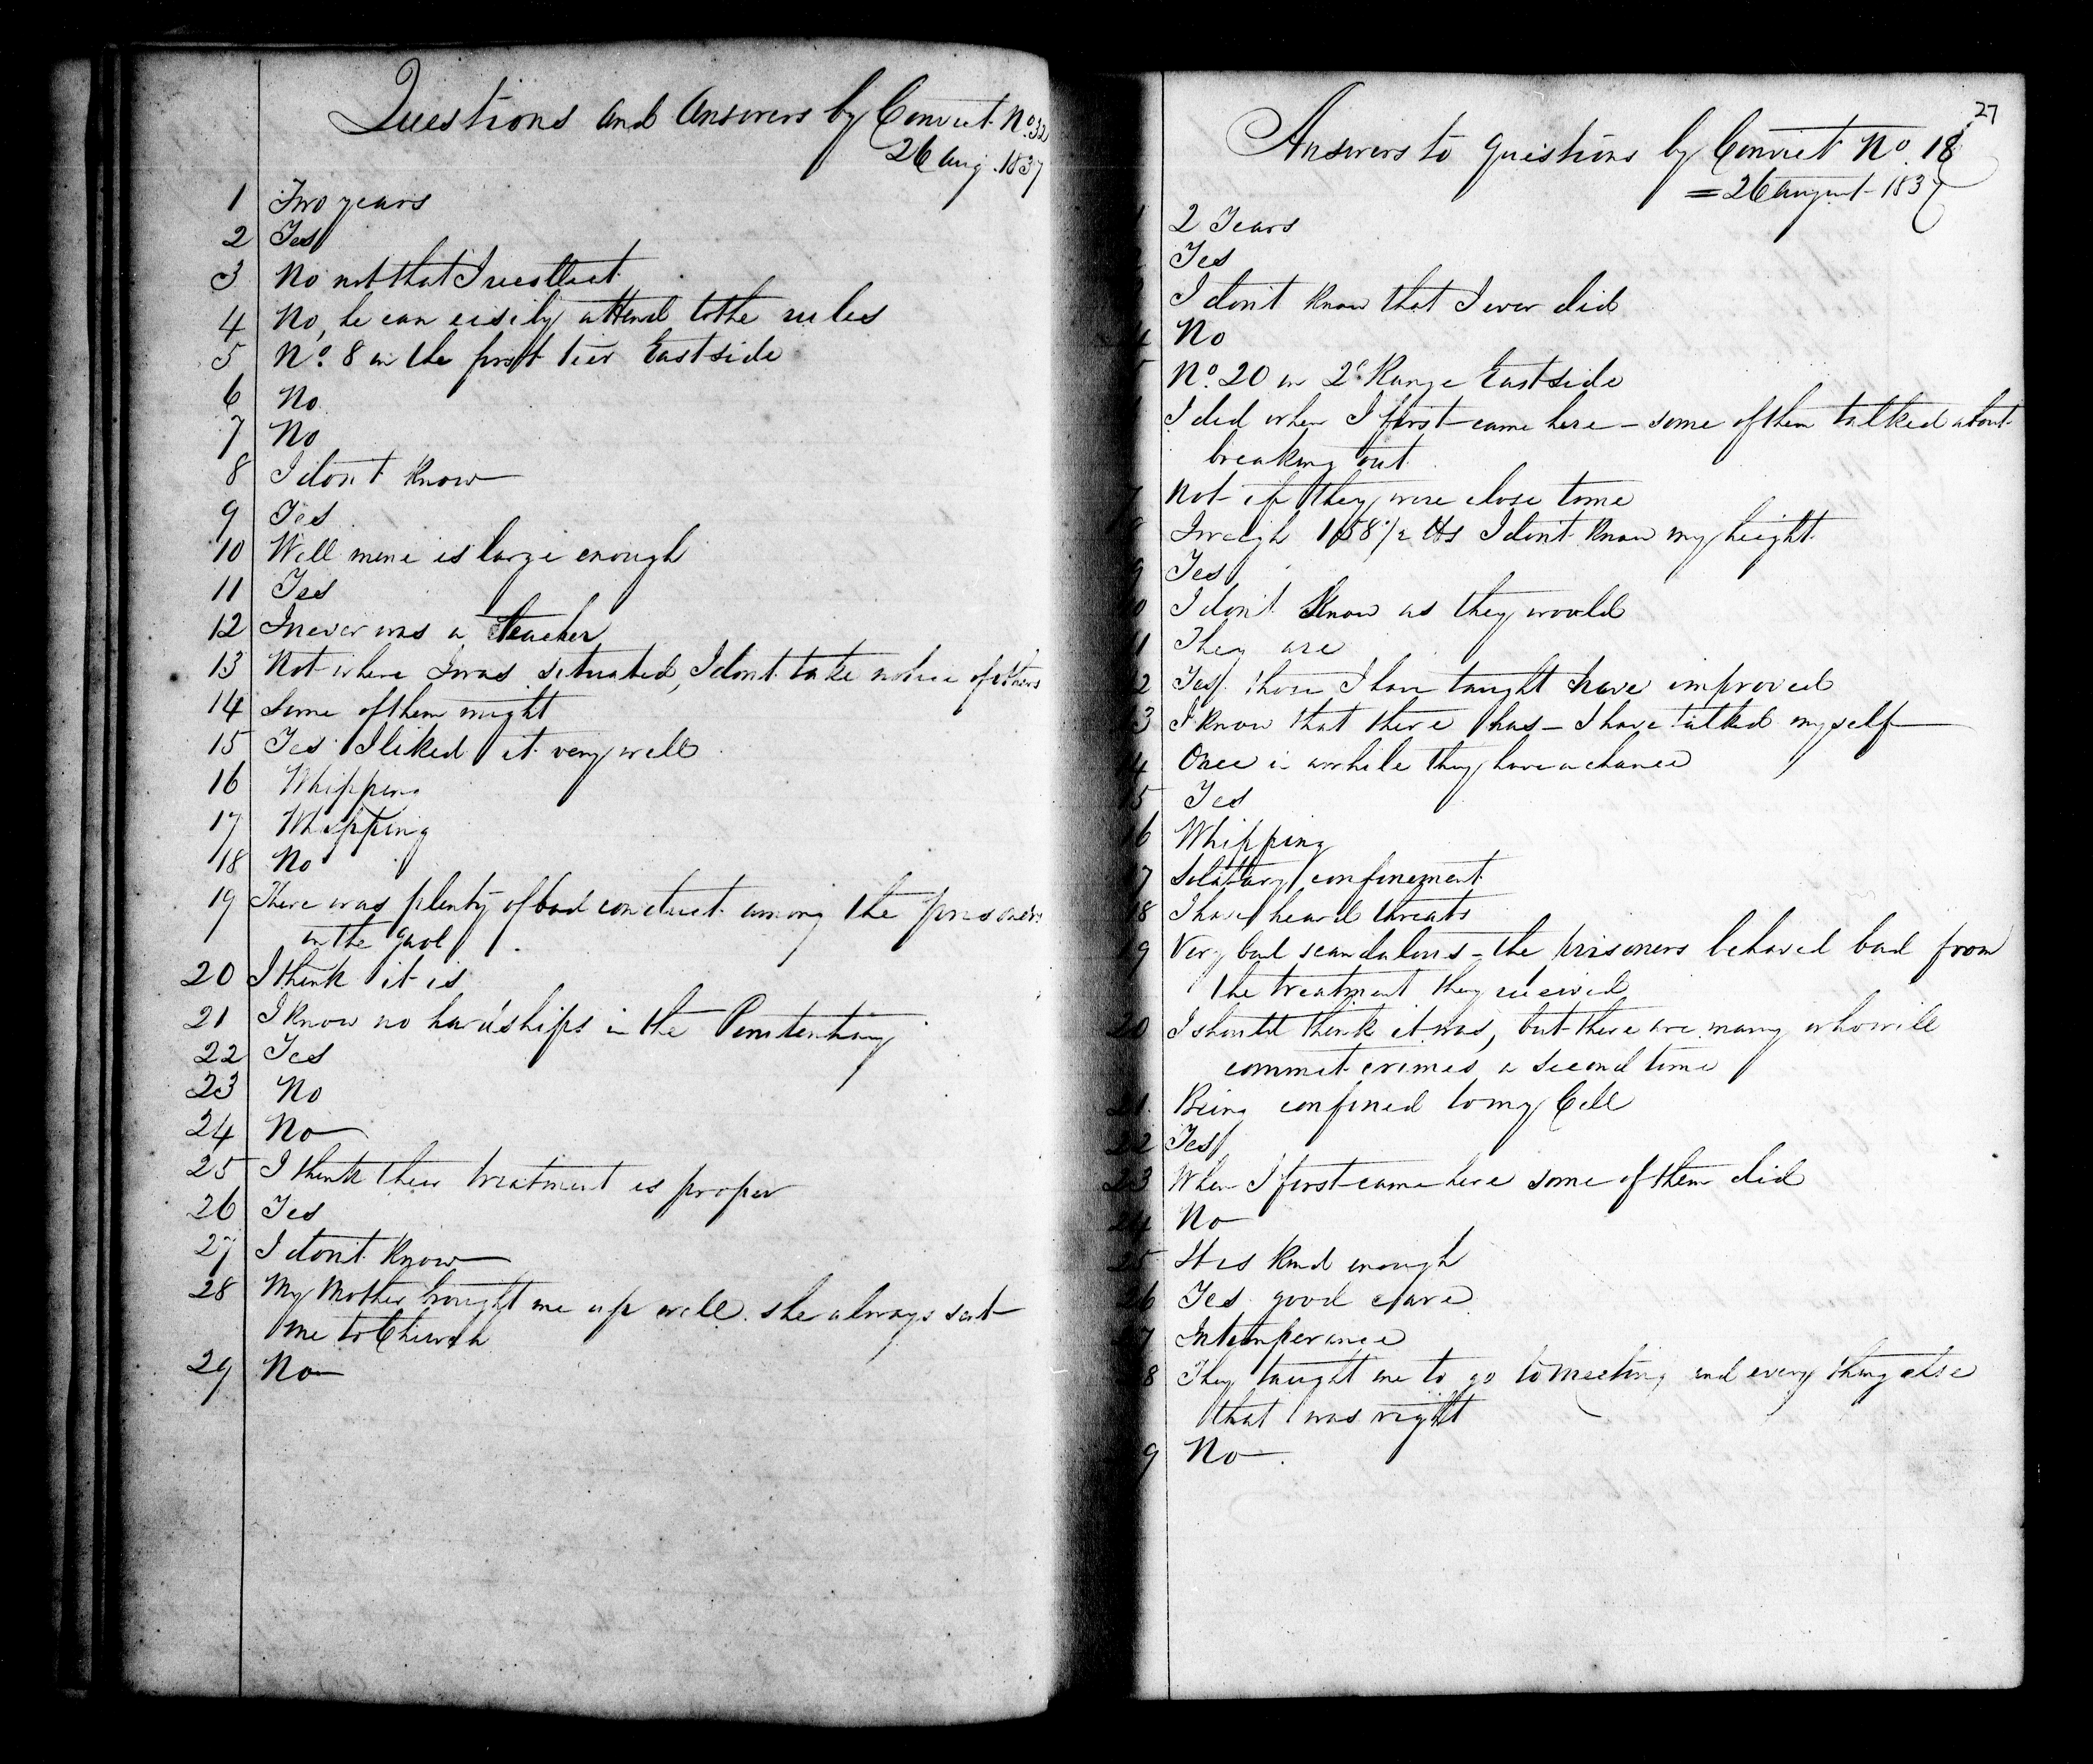 Questions and Answers by Convict No. 32
26 Aug. 1837
1 Two years
2 Yes
3 No not that I recollect
4 No, he can eisily attend to the rules
5 No. 8 in the first tier East side
6 No
7 No
8 I don't know
9 Yes
10 Well mine is large enough
11 Yes
12 I never was a teacher
13 Not where I was situated, I dont take notice of others
14 Some of them might
15 Yes I liked it very well
16 Whipping
17 Whipping
18 No
19 There was plenty of bad conduct among the prisoners
in the gaol
20 I think it is
21 I know no hardships in the Penitentiary
22 Yes
23 No
24 No
25 I think their treatment is proper
26 Yes
27 I don't know
28 My Mother brought me up well. she always sent
me to Church
29 No
27
Answers to questions by Convict No. 18
= 26 August 1837
1 2 Years
Yes
I don't know that I ever did
4 No
5 No. 20 in 2d Range East side
I did when I first came here - some of them talked about
breaking out
7 Not if they were close to me
8 I weigh 158 1/2 lbs I don't know my height
9 Yes
0 I don't know as they would
11 They are
2 Yes those I have taught have improved
3 I know that there has - I have talked myself
14 Once in awhile they have a chance
15 Yes
16 Whipping
7 Solitary confinement
18 I have heard threats
19 Very bad scandalous - the prisoners behaved bad from
the treatment they received
20 I should think it was, but there are many who will
commit crimes a second time
21. Being confined to my Cell
22 Yes
23 When I first came here some of them did
24 No
25 It is kind enough
26 Yes good care
27 Intemperance
8 They taught me to go to meeting and every thing else
that was right
9 No